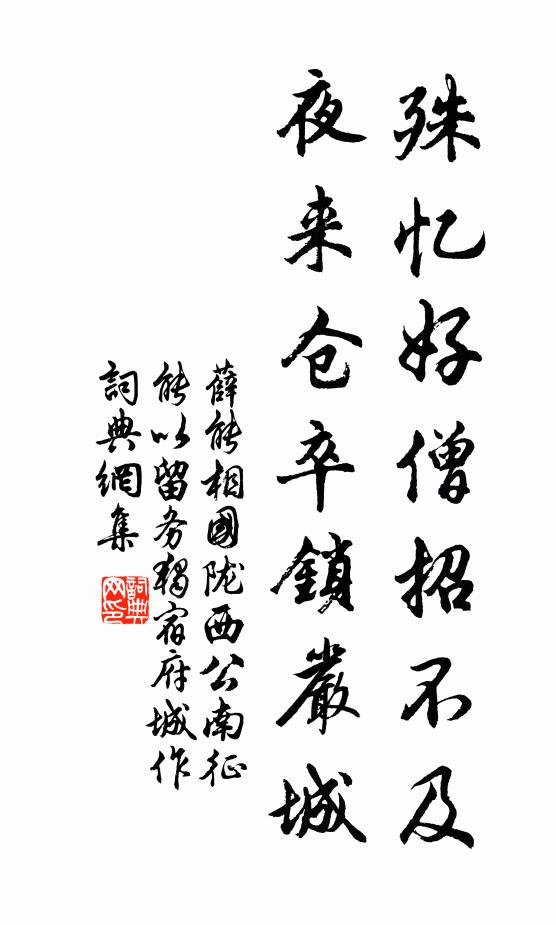 殊忆好僧招不及
夜来仓卒鎖嚴城
薛能相國陇西公南征
能以留务独宿府城作
詞典網集
詞典
网印